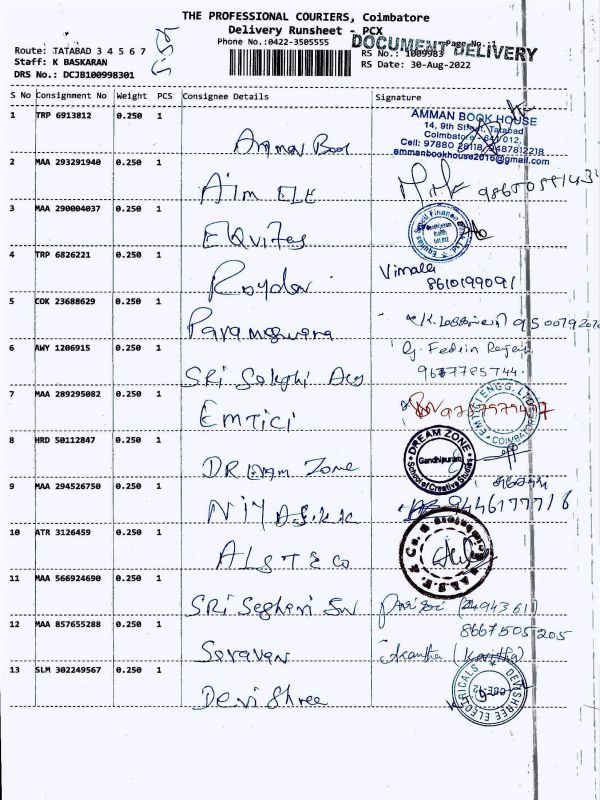 THE PROFESSIONAL COURIERS, Coimbatore
Delivery Runsheet - PCX
Phone No.:0422-3505555
DOCUMENT DELIVERY
Page No.
Route: TATABAD 3 4 5 6 7
RS No.: 1009983
Staff: K BASKARAN
RS Date: 30-Aug-2022
DRS No.: DCJB100998301
S No Consignment No Weight PCS Consignee Details Signature
1 TRP 6913812 0.250 1 Amman Book
AMMAN BOOK HOUSE
14, 9th Street, Tatabad
Coimbatore - 641 012.
Cell: 97880 28118, 9487812218
emmanbookhouse2016@gmail.com
2 MAA 293291940 0.250 1 Aim ELE
3 MAA 290004037 0.250 1 EQvitas
Equitas Small Finance Bank Ltd
4 TRP 6826221 0.250 1
Vimala
8610199091
5 COK 23688629 0.250 1 Parameswara
6 AWY 1206915 0.250 1 SRi Sakthi
G. Fedrin
7 MAA 289295082 0.250 1 EMTICI
ENGG. LTD
COIMBATORE
8 HRD 50112847 0.250 1 DREam Zone
DREAM ZONE
Gandhipuram
School of Creative Studies
9 MAA 294526750 0.250 1
9446177716
10 ATR 3126459 0.250 1
& Co.
11 MAA 566924690 0.250 1 SRi
8667505205
12 MAA 857655288 0.250 1 Saravan
(Kavitha)
13 SLM 302249567 0.250 1 Devi Shree
DEVISHREE ELECTRICALS
CBE-12